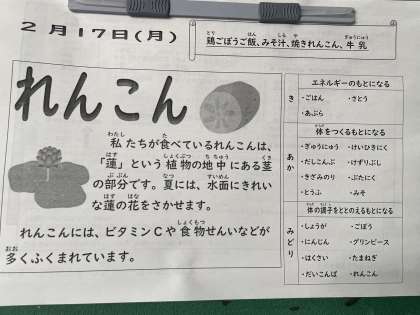 2月17日(月)
鶏ごぼうご飯、みそ汁、焼きれんこん、牛乳
れんこん
私たちが食べているれんこんは、
「蓮」という植物の地中にある茎
の部分です。夏には、水面にきれい
な蓮の花をさかせます。
れんこんには、ビタミンCや食物せんいなどが
多くふくまれています。
き
エネルギーのもとになる
・ごはん ・さとう
・あぶら
あか
体をつくるもとになる
・ぎゅうにゅう ・けいひきにく
・だしこんぶ ・けずりぶし
・きざみのり ・ぶたにく
・とうふ ・みそ
みどり
体の調子をととのえるもとになる
・しょうが ・ごぼう
・にんじん ・グリンピース
・はくさい ・たまねぎ
・だいこんば ・れんこん